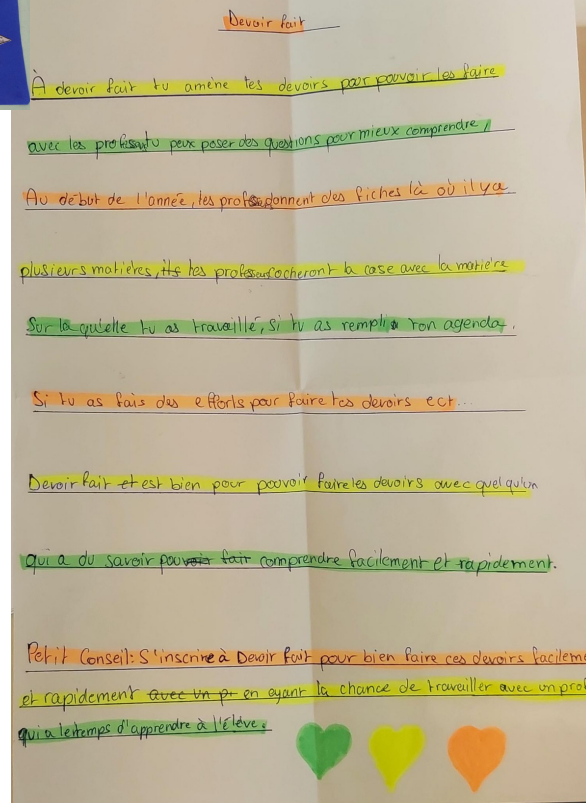 Devoir fait
À devoir fait tu amène tes devoirs pour pouvoir les faire
avec les professeurs tu peux poser des questions pour mieux comprendre,
Au début de l'année, les profs donnent des fiches là où il y a
plusieurs matières, ils les professeurs cocheront la case avec la matière
Sur la qu'elle tu as travaillé, si tu as rempli ton agenda.
Si tu as fais des efforts pour faire tes devoirs ect...
Devoir fait et est bien pour pouvoir faire les devoirs avec quelqu'un
qui a du savoir pouvoir fair comprendre facilement et rapidement.
Petit Conseil: S'inscrire à Devoir fait pour bien faire ces devoirs facileme
et rapidement avec un pr en ayant la chance de travailler avec un prof
qui a le temps d'apprendre à l'élève.